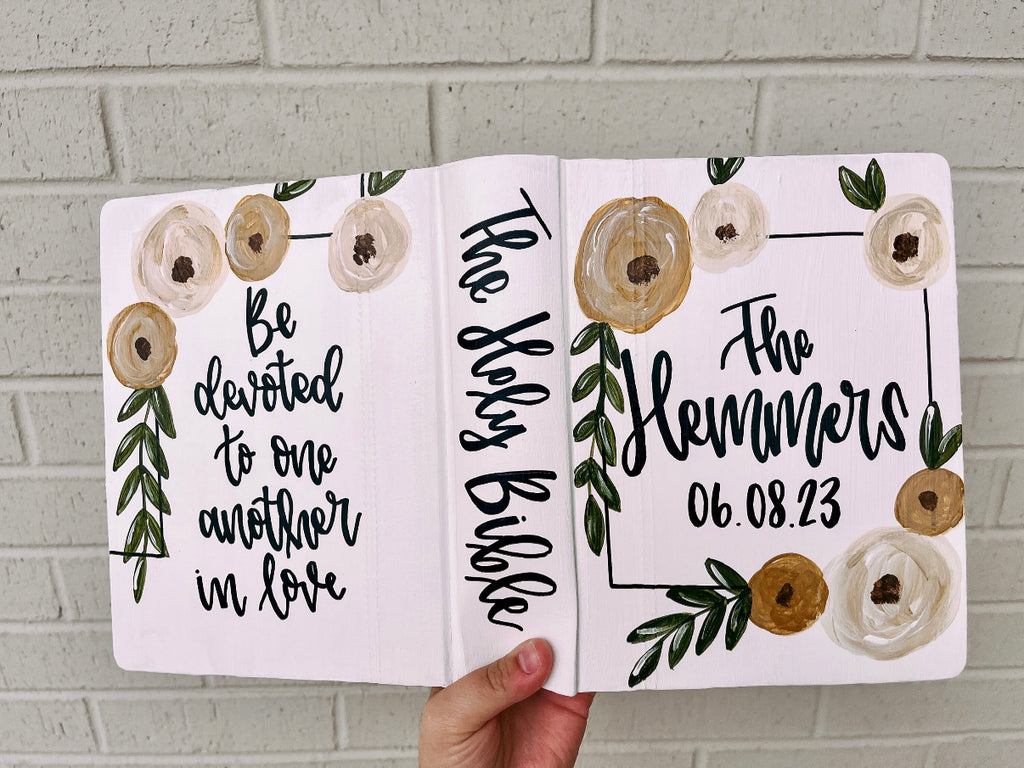 Be
devoted
to one
another
in love
The Holy Bible
The
Hemmers
06.08.23